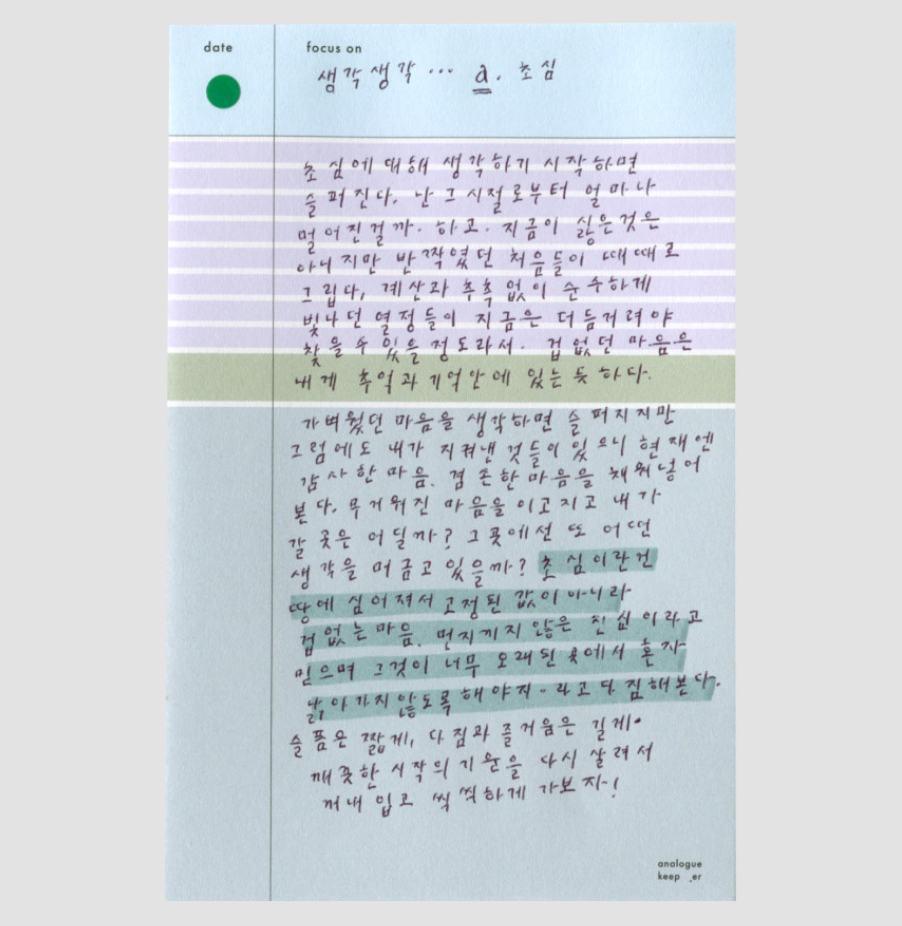 date
focus on
생각생각 ... a. 초심
초심에 대해 생각하기 시작하면
슬퍼진다. 난 그 시절로부터 얼마나
멀어진걸까. 하고. 지금이 싫은것은
아니지만 반짝였던 처음들이 때때로
그립다, 계산과 추측 없이 순수하게
빛나던 열정들이 지금은 더듬거려야
찾을 수 있을 정도라서. 겁없던 마음은
내게 추억과 기억안에 있는 듯 하다.
가벼웠던 마음을 생각하면 슬퍼지지만
그럼에도 내가 지켜낸 것들이 있으니 현재엔
감사한 마음. 겸손한 마음을 채워넣어
본다. 무거워진 마음을 이고지고 내가
갈 곳은 어딜까? 그곳에선 또 어떤
생각을 머금고 있을까? 초심이란건
땅에 심어져서 고정된 값이 아니라
겁없는 마음. 먼지끼지 않은 진심이라고
믿으며 그것이 너무 오래된 곳에서 혼자
낡아가지 않도록 해야지. 라고 다짐해본다.
슬픔은 짧게, 다짐과 즐거움은 길게.
깨끗한 시작의 기운을 다시 살려서
꺼내입고 씩씩하게 가보자!
analogue
keep_er